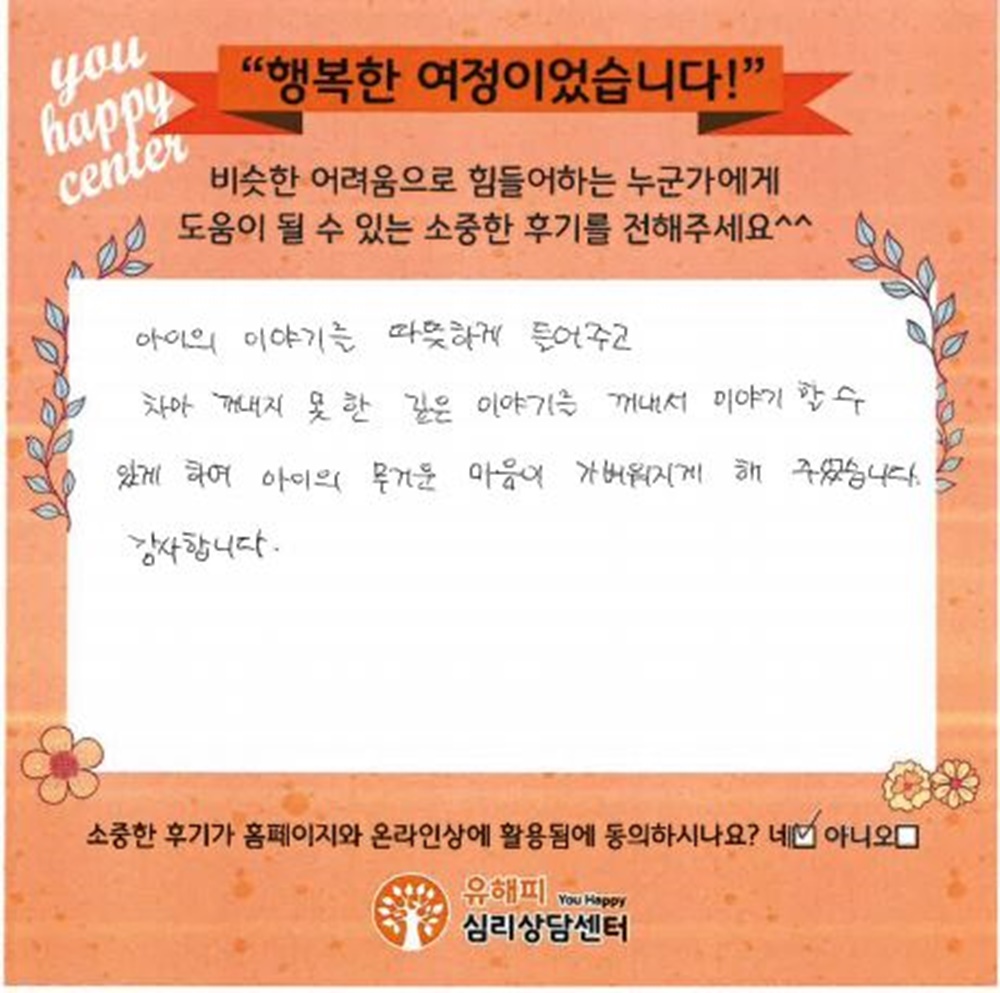 you
happy
center
“행복한 여정이었습니다!”
비슷한 어려움으로 힘들어하는 누군가에게
도움이 될 수 있는 소중한 후기를 전해주세요^^
아이의 이야기를 따뜻하게 들어주고
차마 꺼내지 못 한 깊은 이야기를 꺼내서 이야기 할 수
있게 하여 아이의 무거운 마음이 가벼워지게 해 주셨습니다.
감사합니다.
소중한 후기가 홈페이지와 온라인상에 활용됨에 동의하시나요? 네☑ 아니오☐
유해피 You Happy
심리상담센터